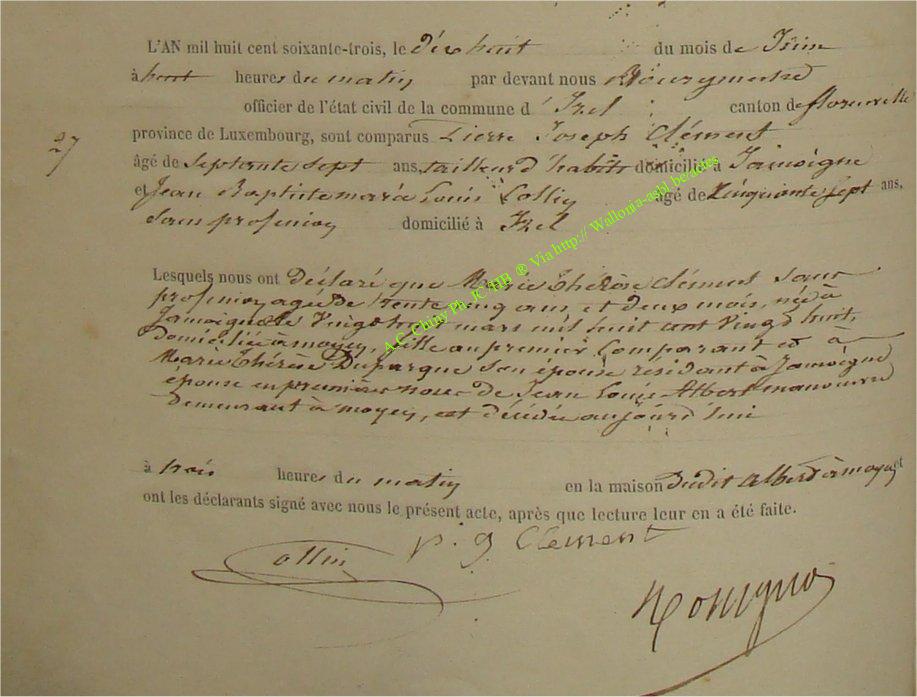 L'AN mil huit cent soixante-trois, le dix huit du mois de Juin
à huit heures du matin par devant nous Bourgmestre
officier de l'état civil de la commune d'Izel canton de florenville
27
province de Luxembourg, sont comparus Pierre Joseph Clément
âgé de Septente Sept ans, tailleur d'habits domicilié à Jamoigne
et Jean Baptiste maria Louis Collin âgé de Cinquante Sept ans,
Sans profession domicilié à Izel
A.C. Chiny Ph. JC HB ® Via http:// Wallonia-asbl.be/actes
Lesquels nous ont déclaré que Marie Thérèse Clément sans
profession, agée de trente cinq ans, et deux mois, née à
Jamoigne le Vingt huit mars mil huit cent Vingt huit,
domiciliée à moyen, fille du premier Comparant et à
Marie Thérèse Duparque son épouse résidant à Jamoigne
épouse en premières noces de Jean Louis Albert manœuvre
demeurant à moyen, est décédée aujourd'hui
à trois heures du matin en la maison dudit Albert à moyen et
ont les déclarants signé avec nous le présent acte, après que lecture leur en a été faite.
Collin p. j Clement